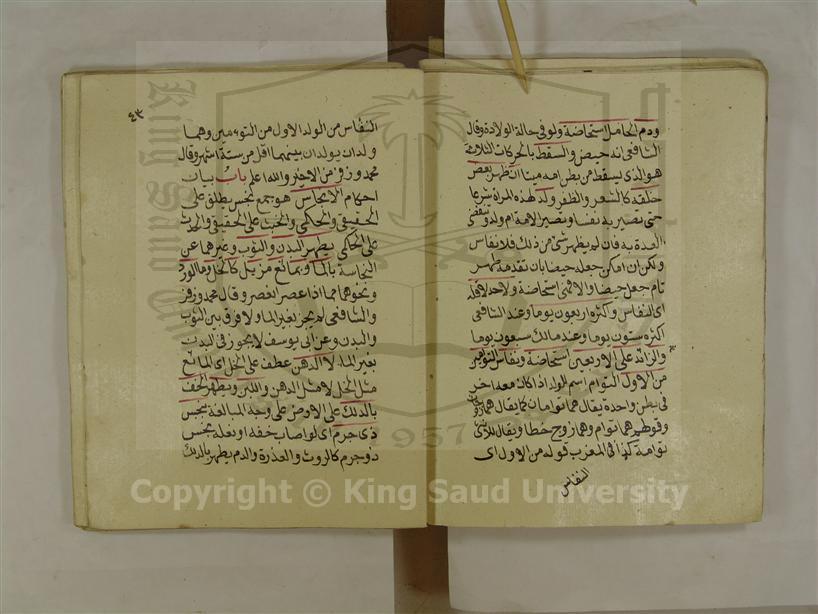 ودم الحامل استحاضة ولو في حالة الولادة وقال
الشافعي انه حيض والسقط بالحركات الثلاثة
هو الذي يسقط من بطن امه ميتا ان ظهر بعض
خلقه كالشعر والظفر ولد لهذه المراة شرعا
حتى تصير به نفسا وتصير الامة ام ولد وتنقضي
العدة به فان لم يظهر شئ من ذلك فلا نفاس
ولكن ان امكن جعله حيضا بان تقدمه طهر
تام جعل حيضا والا فهي استحاضة ولا حد لاقله
اي النفاس واكثره اربعون يوما وعند الشافعي
اكثره ستون يوما وعند مالك سبعون يوما
والزائد على الاربعين استحاضة ونفاس التوأمين
من الاول التوام اسم الولد اذا كان معه اخر
في بطن واحدة يقال هما توامان كما يقال هما زوجان
وقولهم هما توام وهما زوج خطا ويقال للانثى
توامة كذا في المغرب قوله من الاول اي
النفاس
٤٣
النفاس من الولد الاول من التوءمين وهما
ولدان يولدان بينهما اقل من ستة اشهر وقال
محمد وزفر من الاخير والله اعلم باب بيان
احكام الانجاس هو جمع نجس يطلق على
الحقيقي والحكمي والخبث على الحقيقي والحدث
على الحكمي يطهر البدن والثوب وغيرهما عن
النجاسة بالماء وبمائع مزيل كالخل وماء الورد
ونحوهما مما اذا عصر انعصر وقال محمد وزفر
والشافعي لم يجز بغير الماء ولا فرق بين الثوب
والبدن وعن ابي يوسف لا يجوز في البدن
بغير الماء لا الدهن عطف على الخل اي المائع
مثل الخل لا مثل الدهن واللبن ويطهر الخف
بالدلك على الارض على وجه المبالغة بنجس
ذي جرم اي لو اصاب خفه او نعله نجس
ذو جرم كالروث والعذرة والدم يطهر بالدلك
King Saud University
1957
Copyright © King Saud University